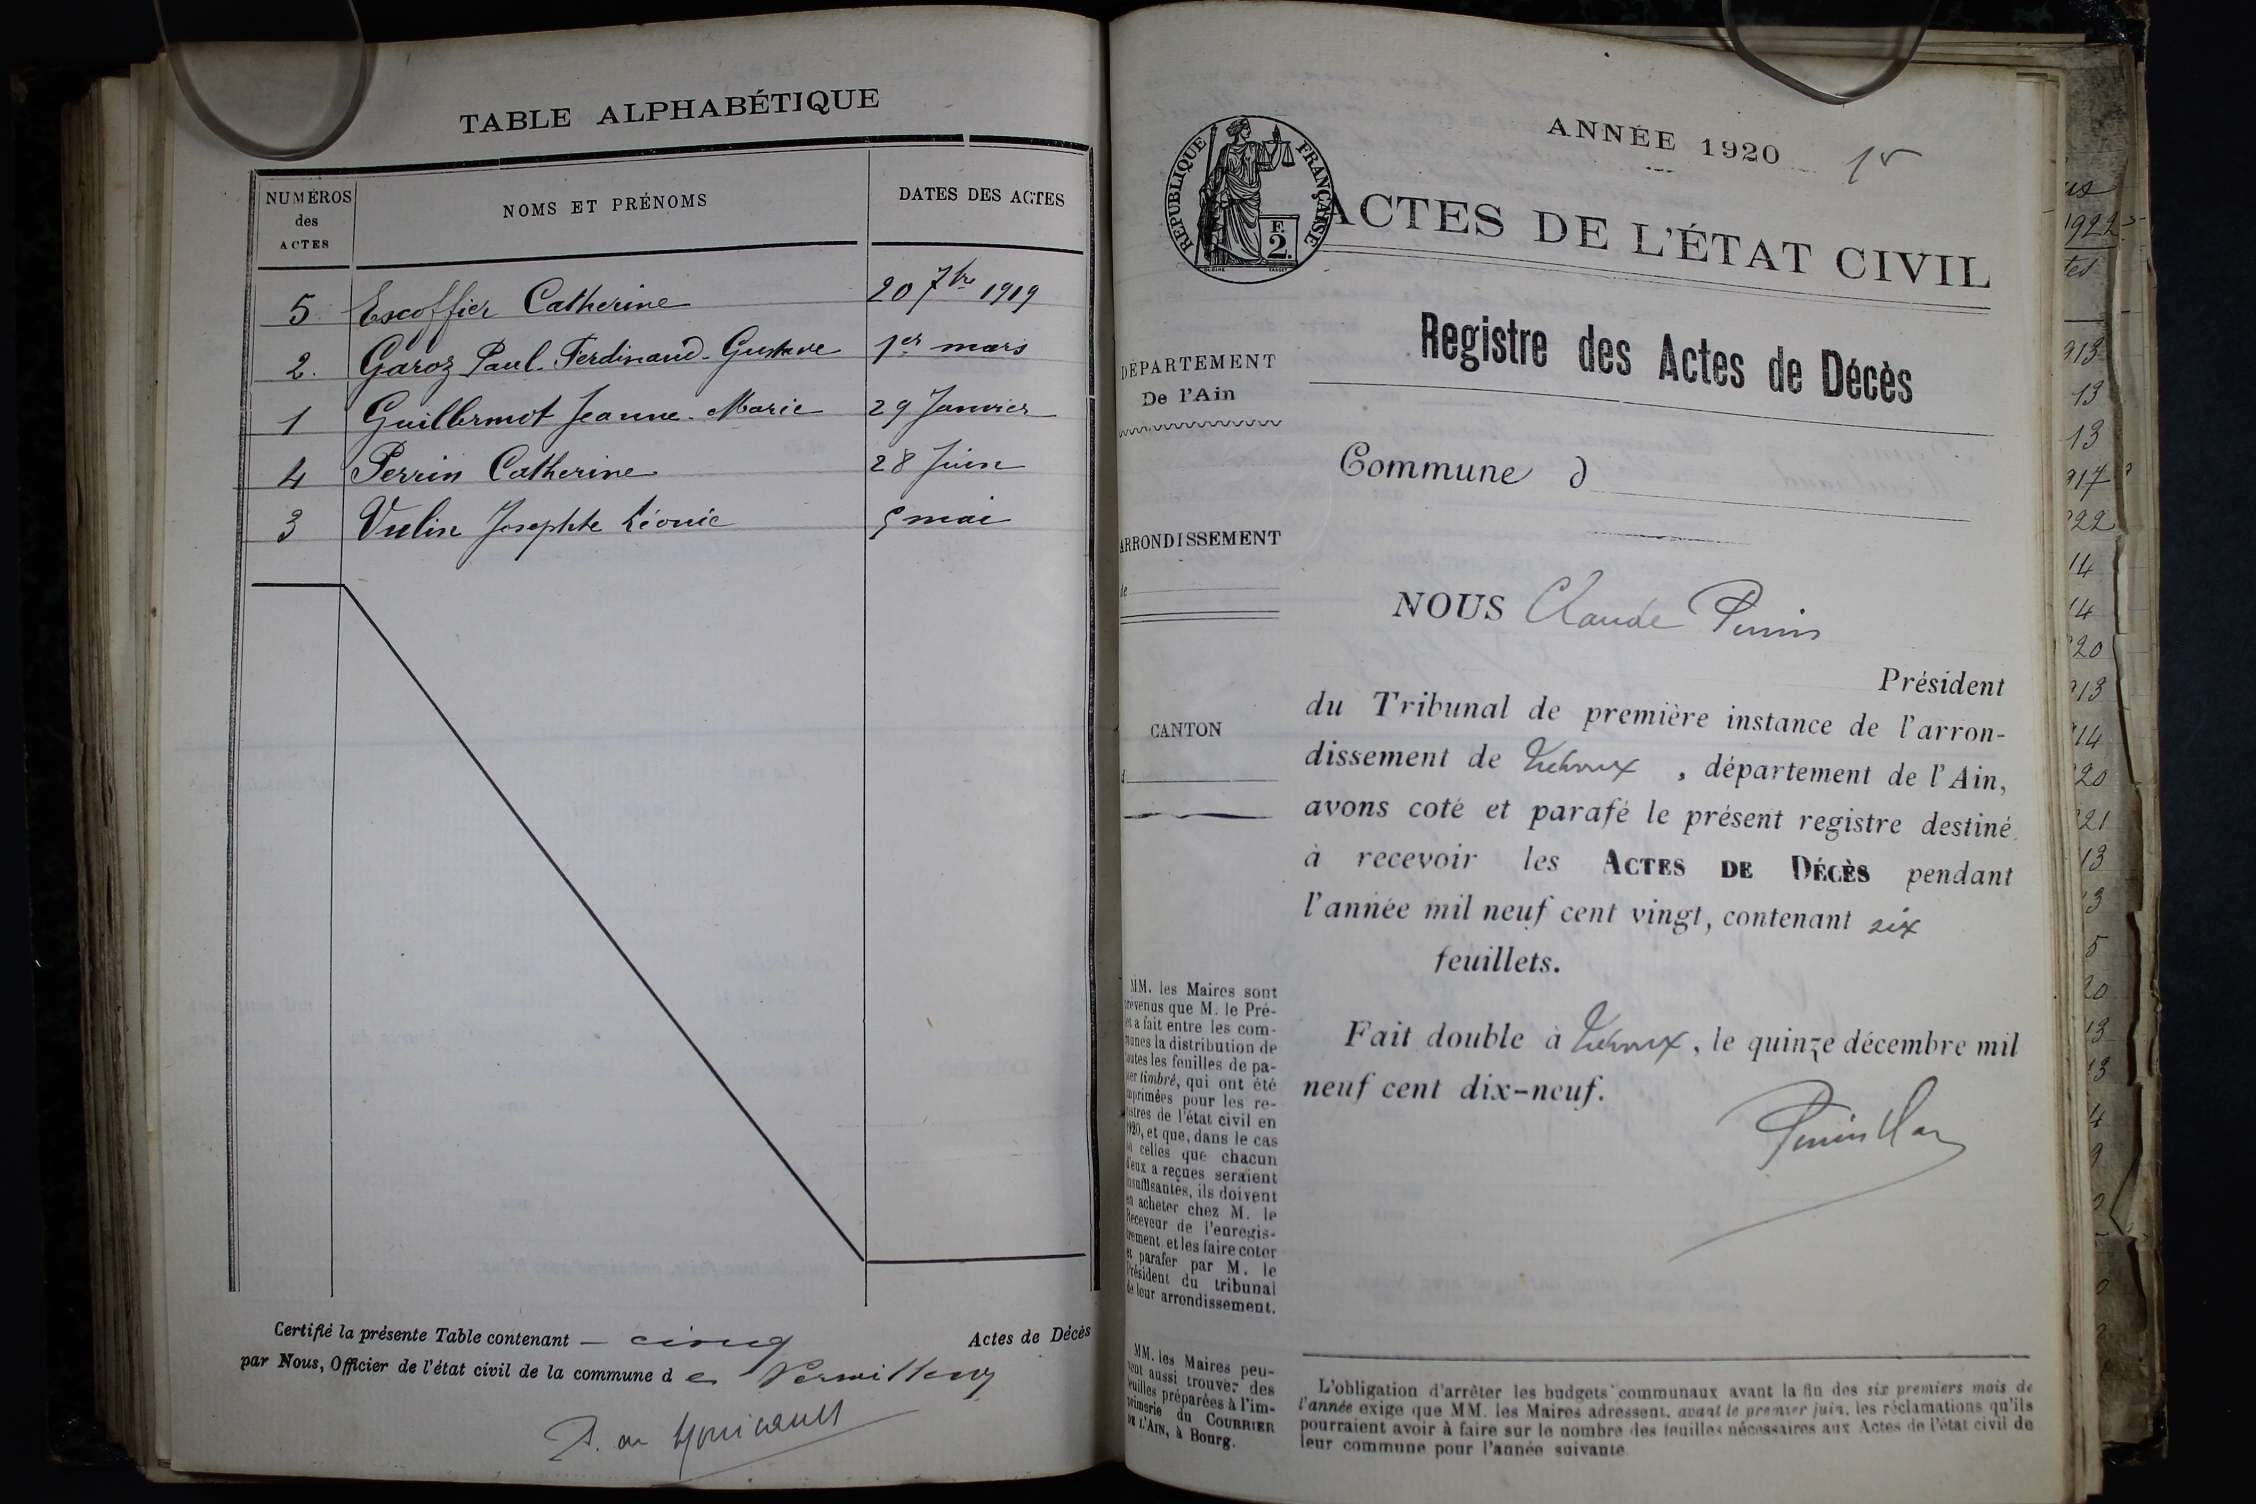 TABLE ALPHABÉTIQUE
NUMÉROS
des
ACTES
NOMS ET PRÉNOMS
DATES DES ACTES
5 Escoffier Catherine 20 7bre 1919
2. Garoz Paul-Ferdinand-Gustave 1er mars
1 Guillermot Jeanne-Marie 29 Janvier
4 Perrin Catherine 28 Juin
3 Vulin Josephte Léonie 5 mai
Certifié la présente Table contenant - cinq Actes de Décès
par Nous, Officier de l'état civil de la commune de
ANNÉE 1920
RÉPUBLIQUE FRANÇAISE
F.
2.
ACTES DE L'ÉTAT CIVIL
Registre des Actes de Décès
DÉPARTEMENT
De l'Ain
Commune d
ARRONDISSEMENT
de
NOUS Claude
Président
du Tribunal de première instance de l'arron-
dissement de Trévoux , département de l'Ain,
avons coté et parafé le présent registre destiné
à recevoir les ACTES DE DÉCÈS pendant
l'année mil neuf cent vingt, contenant six
feuillets.
Fait double à Trévoux, le quinze décembre mil
neuf cent dix-neuf.
CANTON
d
MM. les Maires sont
prévenus que M. le Pré-
fet a fait entre les com-
munes la distribution de
toutes les feuilles de pa-
pier timbré, qui ont été
imprimées pour les re-
gistres de l'état civil en
1920, et que, dans le cas
où celles que chacun
d'eux a reçues seraient
insuffisantes, ils doivent
en acheter chez M. le
Receveur de l'enregis-
trement et les faire coter
et parafer par M. le
Président du tribunal
de leur arrondissement.
MM. les Maires peu-
vent aussi trouver des
feuilles préparées à l'im-
primerie du COURRIER
DE L'AIN, à Bourg.
L'obligation d'arrêter les budgets communaux avant la fin des six premiers mois de
l'année exige que MM. les Maires adressent, avant le premier juin, les réclamations qu'ils
pourraient avoir à faire sur le nombre des feuilles nécessaires aux Actes de l'état civil de
leur commune pour l'année suivante